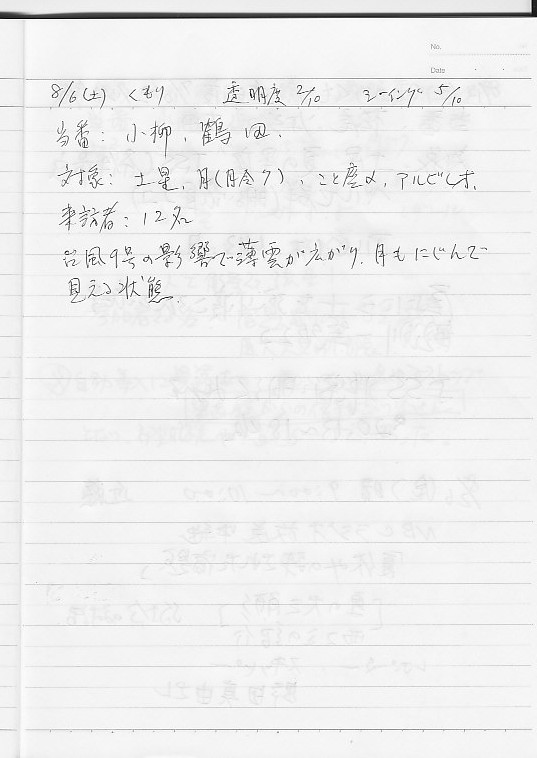 No.
Date
8/6(土) くもり 透明度 2/10 シーイング 5/10
当番: 小柳、鶴田.
対象: 土星、月(月令7)、こと座α、アルビレオ.
来訪者: 12名
台風9号の影響で薄雲が広がり、月もにじんで
見える状態.